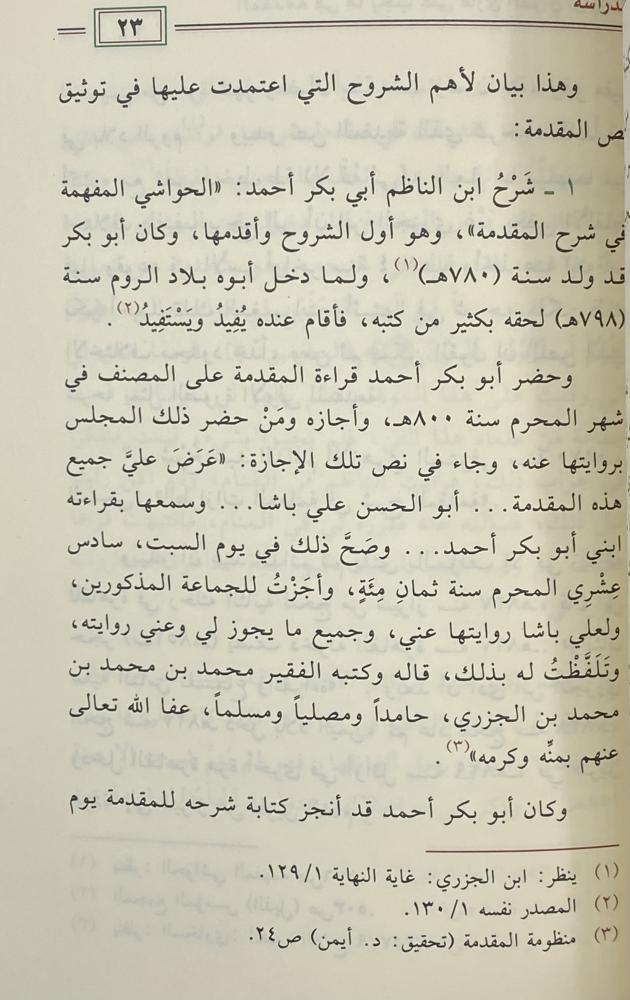 الدراسة
٢٣
وهذا بيان لأهم الشروح التي اعتمدت عليها في توثيق
نص المقدمة:
١ ـ شَرْحُ ابن الناظم أبي بكر أحمد: «الحواشي المفهمة
في شرح المقدمة»، وهو أول الشروح وأقدمها، وكان أبو بكر
قد ولد سنة (٧٨٠هـ)(١)، ولما دخل أبوه بلاد الروم سنة
(٧٩٨هـ) لحقه بكثير من كتبه، فأقام عنده يُفِيدُ ويَسْتَفِيدُ(٢).
وحضر أبو بكر أحمد قراءة المقدمة على المصنف في
شهر المحرم سنة ٨٠٠هـ، وأجازه ومَنْ حضر ذلك المجلس
بروايتها عنه، وجاء في نص تلك الإجازة: «عَرَضَ عليَّ جميع
هذه المقدمة... أبو الحسن علي باشا... وسمعها بقراءته
ابني أبو بكر أحمد... وصَحَّ ذلك في يوم السبت، سادس
عِشْرِي المحرم سنة ثمانِ مِئَةٍ، وأجَزْتُ للجماعة المذكورين،
ولعلي باشا روايتها عني، وجميع ما يجوز لي وعني روايته،
وتَلَفَّظْتُ له بذلك، قاله وكتبه الفقير محمد بن محمد بن
محمد بن الجزري، حامداً ومصلياً ومسلماً، عفا الله تعالى
عنهم بمنِّه وكرمه»(٣).
وكان أبو بكر أحمد قد أنجز كتابة شرحه للمقدمة يوم
(١) ينظر: ابن الجزري: غاية النهاية ١/ ١٢٩.
(٢) المصدر نفسه ١/ ١٣٠.
(٣) منظومة المقدمة (تحقيق: د. أيمن) ص٢٤.